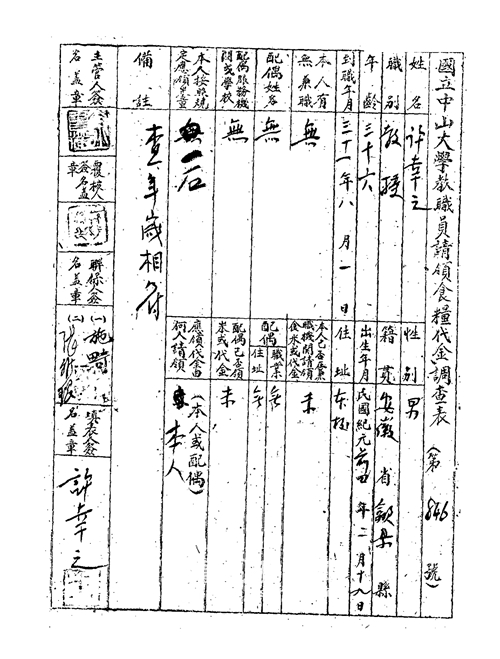 國立中山大學教職員請領食糧代金調查表（第 846 號）
姓名 許幸之 性別 男
職別 教授 籍貫 安徽省歙縣縣
年齡 三十六 出生年月 民國紀元前四年二月十九日
到職年月 三十一年八月一日 住址 本校
本人有無兼職 無 本人已否在兼職機關請領食米或代金 未
配偶姓名 無 配偶 職業 無 住址
配偶服務機關或學校 無 配偶已否領米或代金 未
本人按照規定應領數量 一石 應領代金由何人請領 （本人或配偶） 本人
備註 查年歲相符
主管人簽名蓋章
覆核人簽名蓋章
聯保人簽名蓋章 （一）施 （二）張
填表人簽名蓋章 許幸之